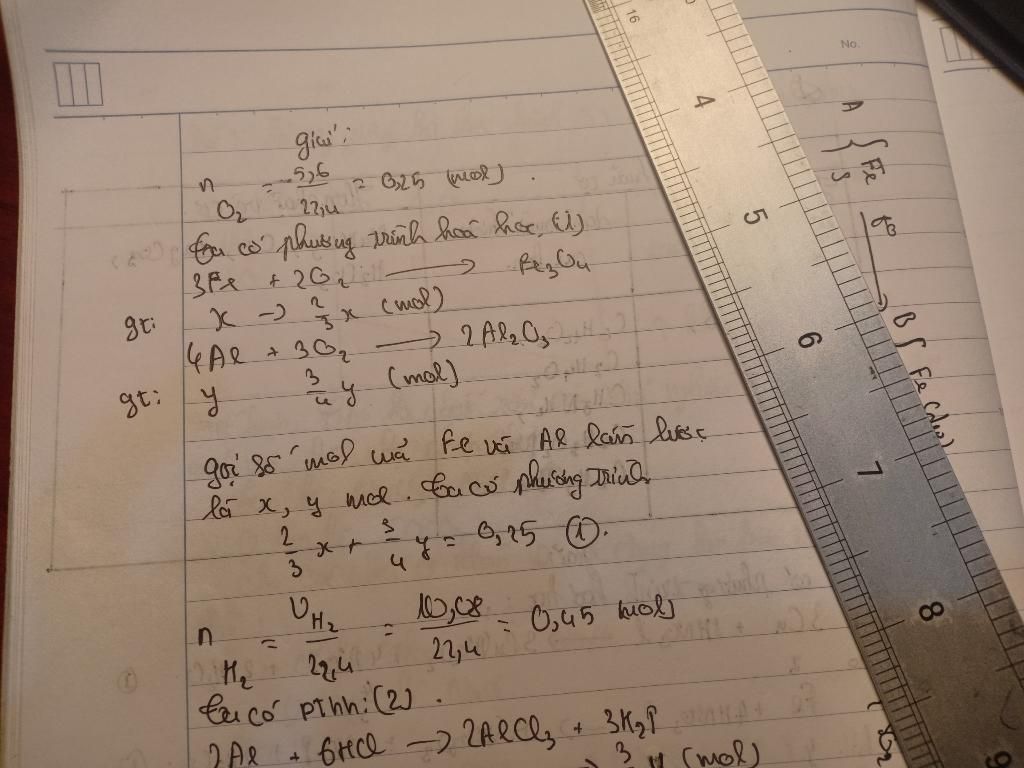 No.
giải:
n O₂ = 5,6/22,4 = 0,25 (mol).
Ta có phương trình hoá học (1)
3Fe + 2O₂ → Fe₃O₄
gt: x → 2/3 x (mol)
4Al + 3O₂ → 2Al₂O₃
gt: y 3/4 y (mol)
gọi số mol của Fe và Al lần lượt
là x, y mol. Ta có phương trình
2/3 x + 3/4 y = 0,25 (1).
n H₂ = V H₂/22,4 = 10,08/22,4 = 0,45 mol)
Ta có PTHH: (2).
2Al + 6HCl → 2AlCl₃ + 3H₂↑
3 y (mol)
4
5
6
7
8
9
A { Fe S
t° → B { Fe (dư)